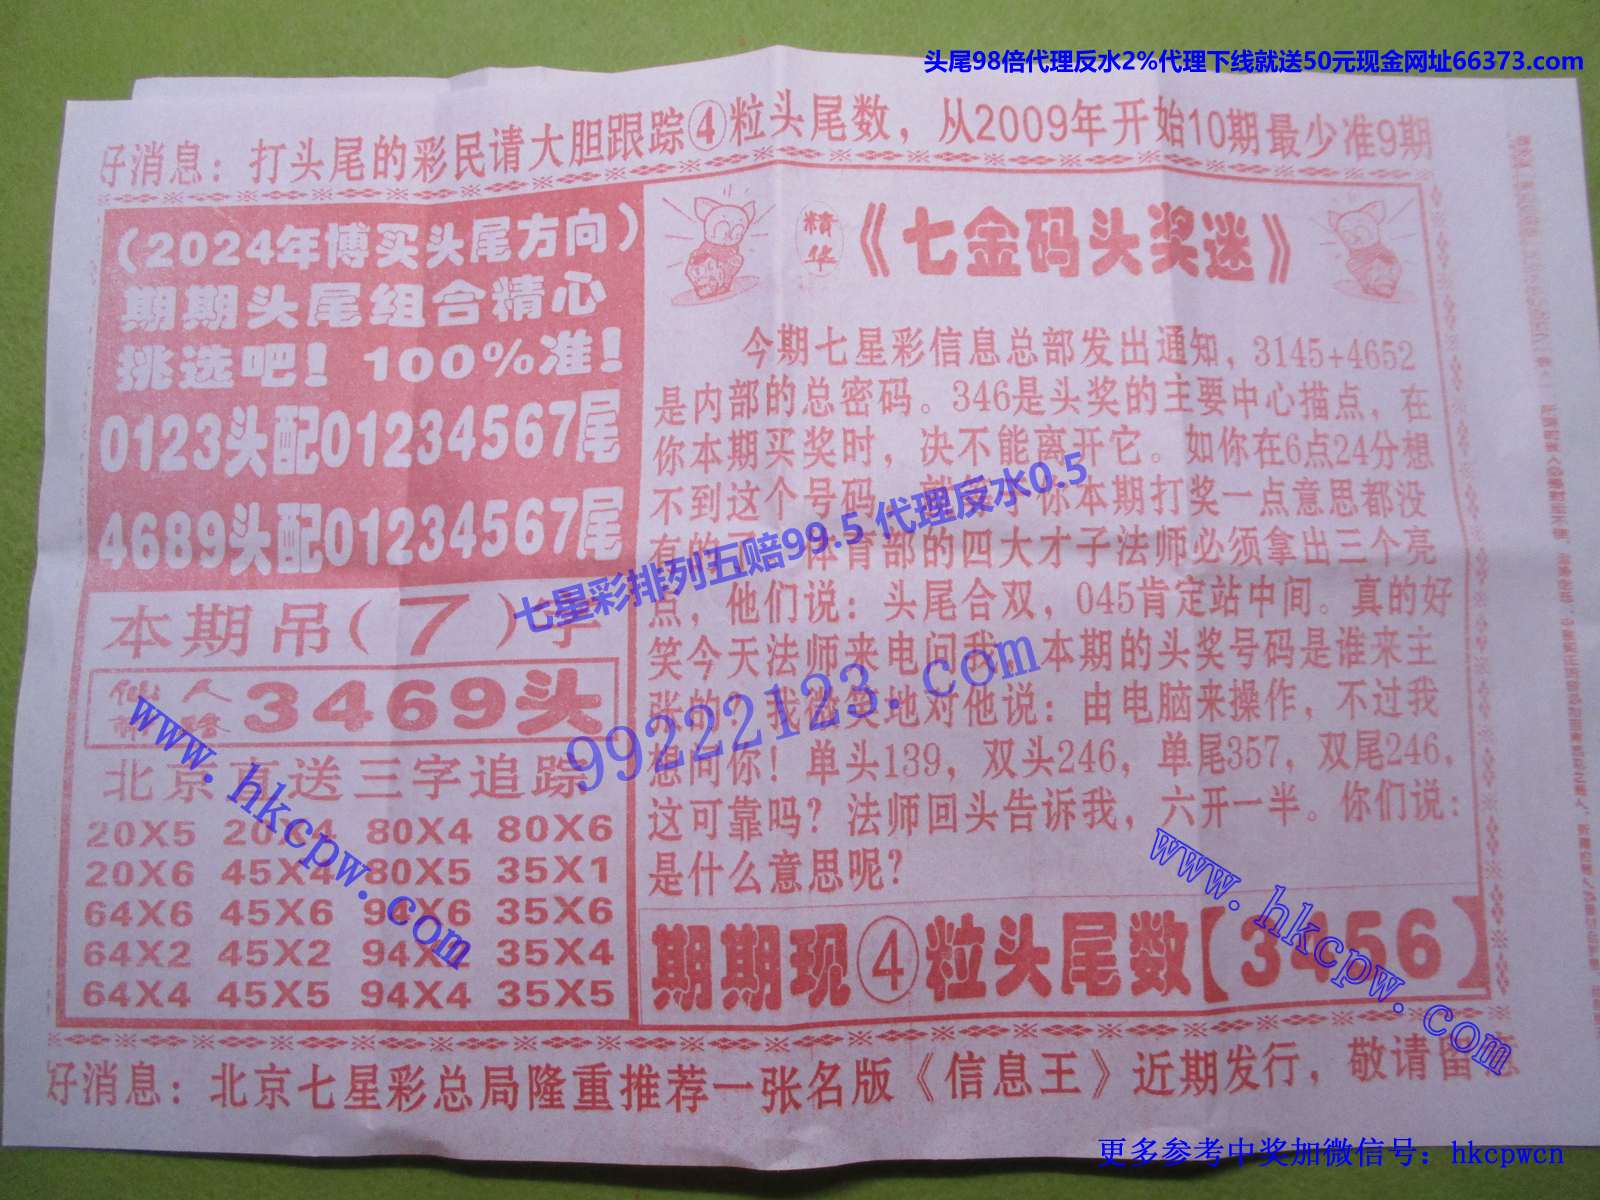 头尾98倍代理反水2%代理下线就送50元现金网址66373.com
好消息：打头尾的彩民请大胆跟踪④粒头尾数，从2009年开始10期最少准9期
（2024年博买头尾方向）
期期头尾组合精心
挑选吧！100%准！
0123头配01234567尾
4689头配01234567尾
本期吊（7）字
仙人 3469头
北京直送三字追踪
20X5 20X4 80X4 80X6
20X6 45X4 80X5 35X1
64X6 45X6 94X6 35X6
64X2 45X2 94X2 35X4
64X4 45X5 94X4 35X5
精华《七金码头奖迷》
今期七星彩信息总部发出通知，3145+4652
是内部的总密码。346是头奖的主要中心描点，在
你本期买奖时，决不能离开它。如你在6点24分想
不到这个号码，你本期打奖一点意思都没
有的 体育部的四大才子法师必须拿出三个亮
点，他们说：头尾合双，045肯定站中间。真的好
笑今天法师来电问我，本期的头奖号码是谁来主
张的？我微笑地对他说：由电脑来操作，不过我
想问你！单头139，双头246，单尾357，双尾246，
这可靠吗？法师回头告诉我，六开一半。你们说：
是什么意思呢？
期期现④粒头尾数【3456】
好消息：北京七星彩总局隆重推荐一张名版《信息王》近期发行，敬请留意
七星彩排列五赔99.5 代理反水0.5
99222123.com
www.hkcpw.com
www.hkcpw.com
更多参考中奖加微信号：hkcpwcn